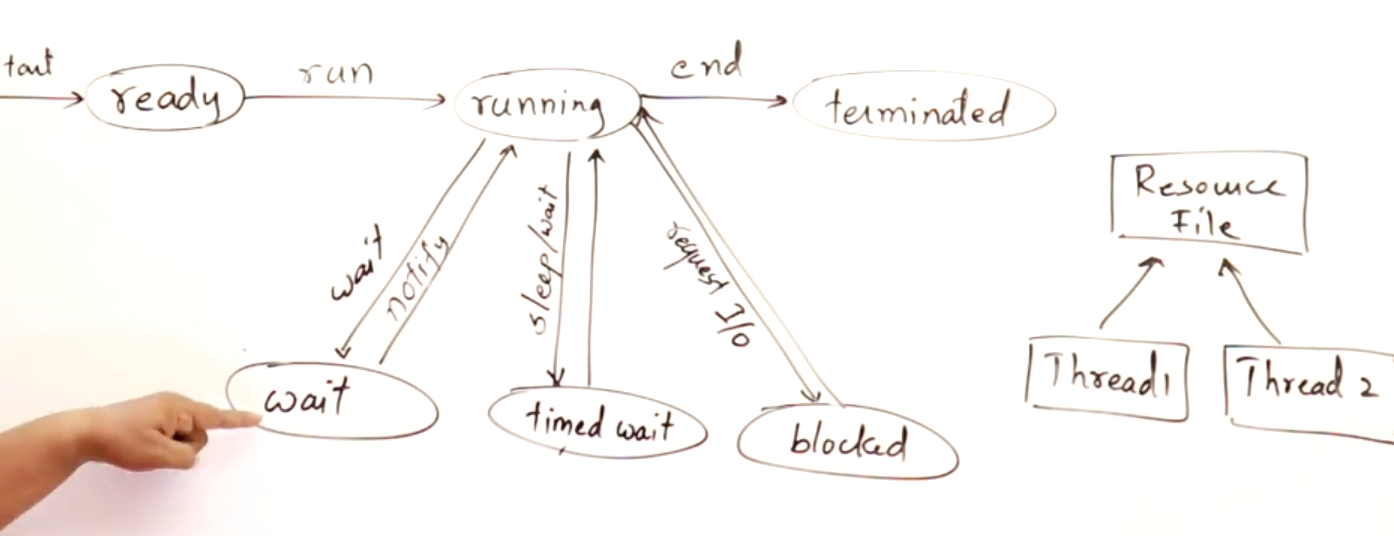 tart
ready
run
running
end
terminated
wait
notify
sleep/wait
request I/O
wait
timed wait
blocked
Resource
File
Thread1
Thread 2